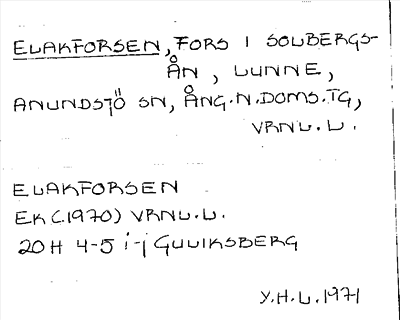 ELAKFORSEN, FORS I SOLBERGS-
ÅN, LUNNE,
ANUNDSJÖ SN, ÅNG.N.DOMS.TG,
VRNL.L.
ELAKFORSEN
EK (1970) VRNL.L.
20H 4-5 i-j GULIKSBERG
Y.H.L.1971